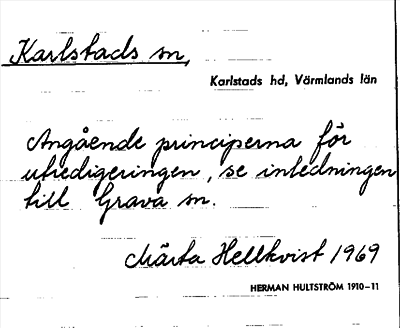 Karlstads sn,
Karlstads hd, Värmlands län
Angående principerna för
utredigeringen, se inledningen
till Grava sn.
Märta Hellkvist 1969
HERMAN HULTSTRÖM 1910-11